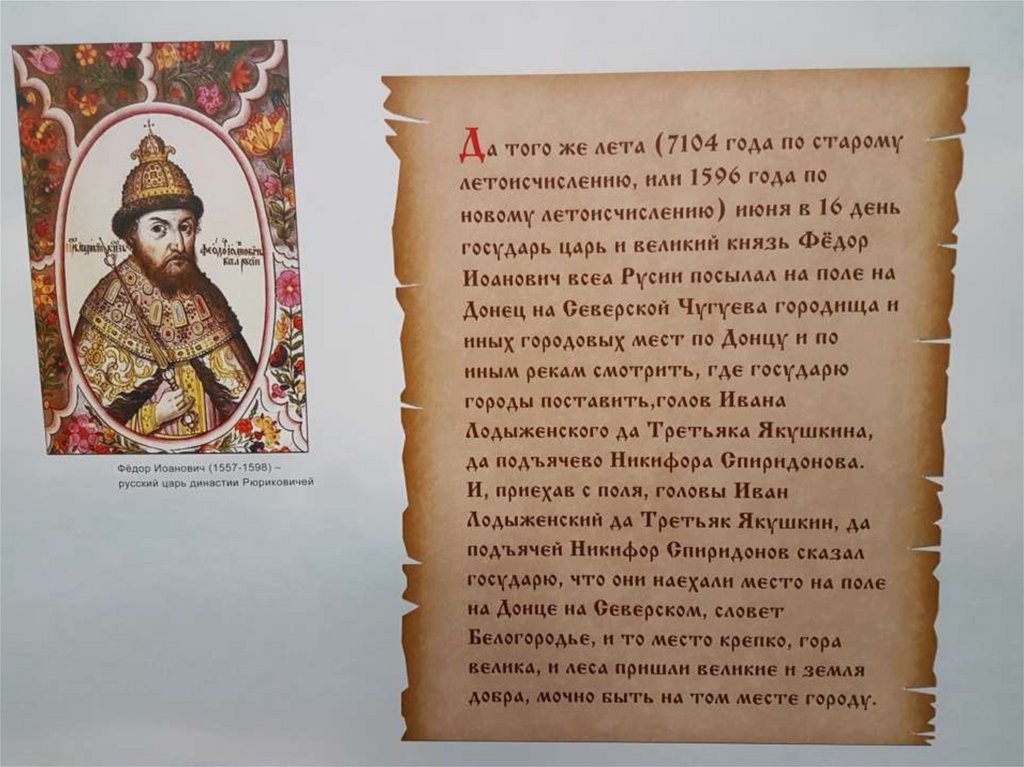 Фёдор Иоанович (1557-1598) –
русский царь династии Рюриковичей
Да того же лета (7104 года по старому
летоисчислению, или 1596 года по
новому летоисчислению) июня в 16 день
государь царь и великий князь Фёдор
Иоанович всеа Русии посылал на поле на
Донец на Северской Чугуева городища и
иных городовых мест по Донцу и по
иным рекам смотрить, где государю
городы поставить,голов Ивана
Лодыженского да Третьяка Якушкина,
да подъячево Никифора Спиридонова.
И, приехав с поля, головы Иван
Лодыженский да Третьяк Якушкин, да
подъячей Никифор Спиридонов сказал
государю, что они наехали место на поле
на Донце на Северском, словет
Белогородье, и то место крепко, гора
велика, и леса пришли великие и земля
добра, мочно быть на том месте городу.